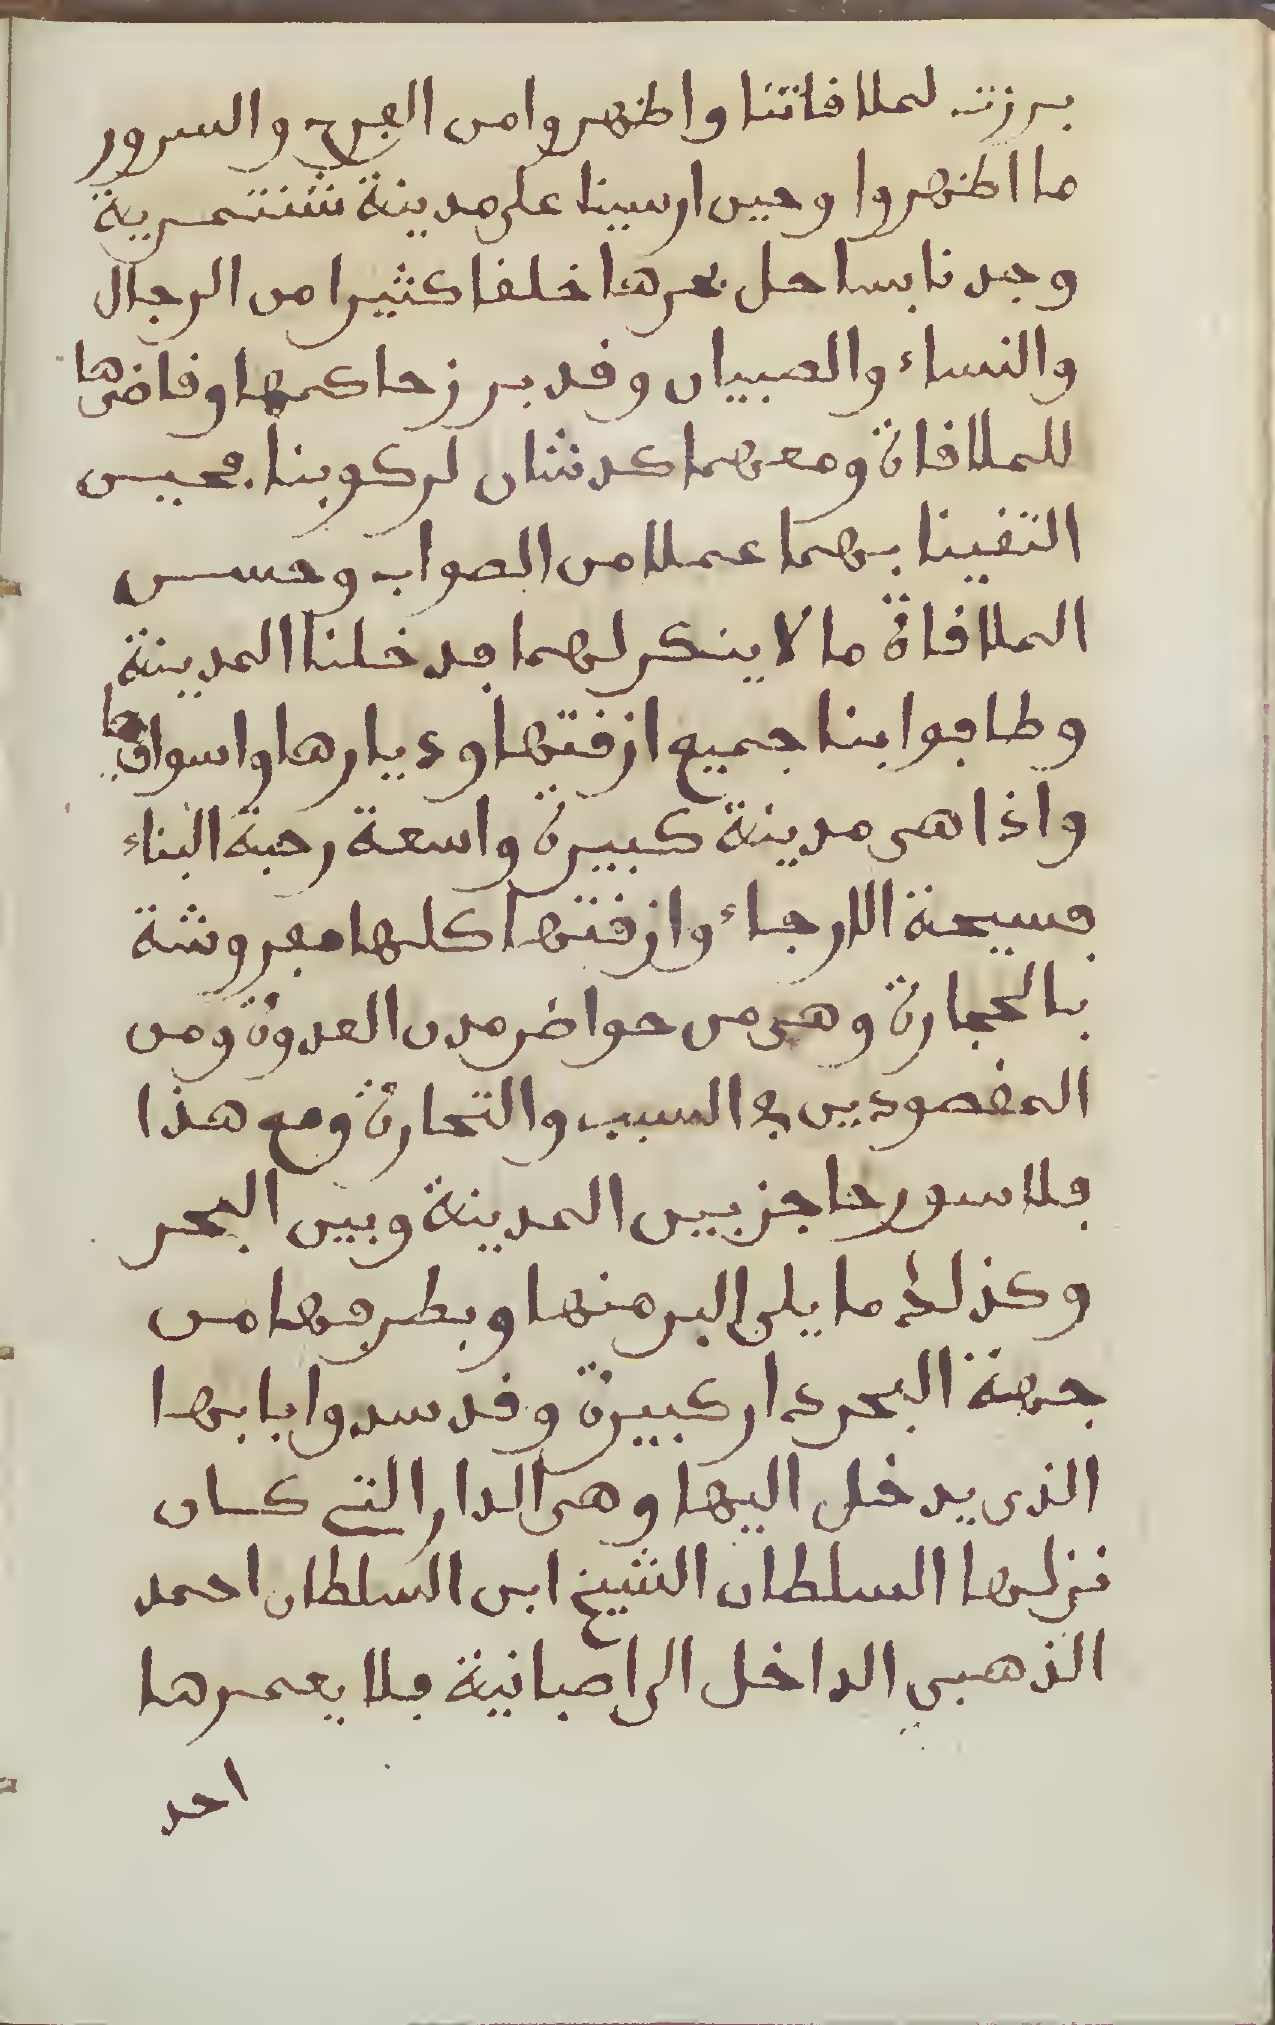 برزت لملاقاتنا واظهروا من الفرح والسرور
ما اظهروا وحين ارسينا على مدينة شنتمرية
وجدنا بساحل بحرها خلفا كثيرا من الرجال
والنساء والصبيان وقد برز حاكمها وقاضيها
للملاقاة ومعهما كدشان لركوبنا فحين
التقينا بهما عملا من الصواب وحسن
الملاقاة ما لا ينكر لهما فدخلنا المدينة
وطافوا بنا جميع ازقتها وديارها واسواقها
واذا هى مدينة كبيرة واسعة رحبة البناء
فسيحة الارجاء وازقتها كلها مفروشة
بالحجارة وهى من حواضر مدن العدوة ومن
المقصودين في السبب والتجارة ومع هذا
فلا سور حاجز بين المدينة وبين البحر
وكذلك ما يلى البر منها وبطرفها من
جهة البحر دار كبيرة وقد سدوا بابها
الذى يدخل اليها وهى الدار التي كان
نزلها السلطان الشيخ ابن السلطان احمد
الذهبي الداخل الى اصبانية فلا يعمرها
احد